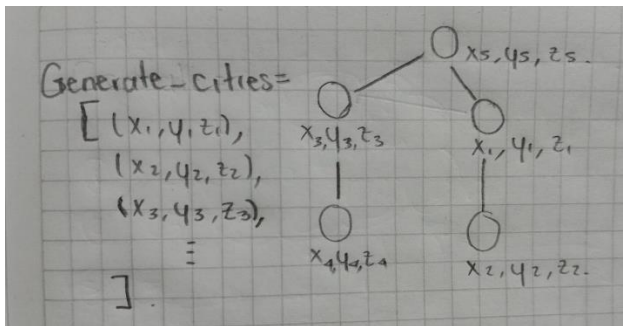 Generate_cities=
[(x₁,y₁,z₁),
(x₂,y₂,z₂),
(x₃,y₃,z₃),
⋮
].
x₅,y₅,z₅.
x₃,y₃,z₃
x₁,y₁,z₁
x₄,y₄,z₄
x₂,y₂,z₂.